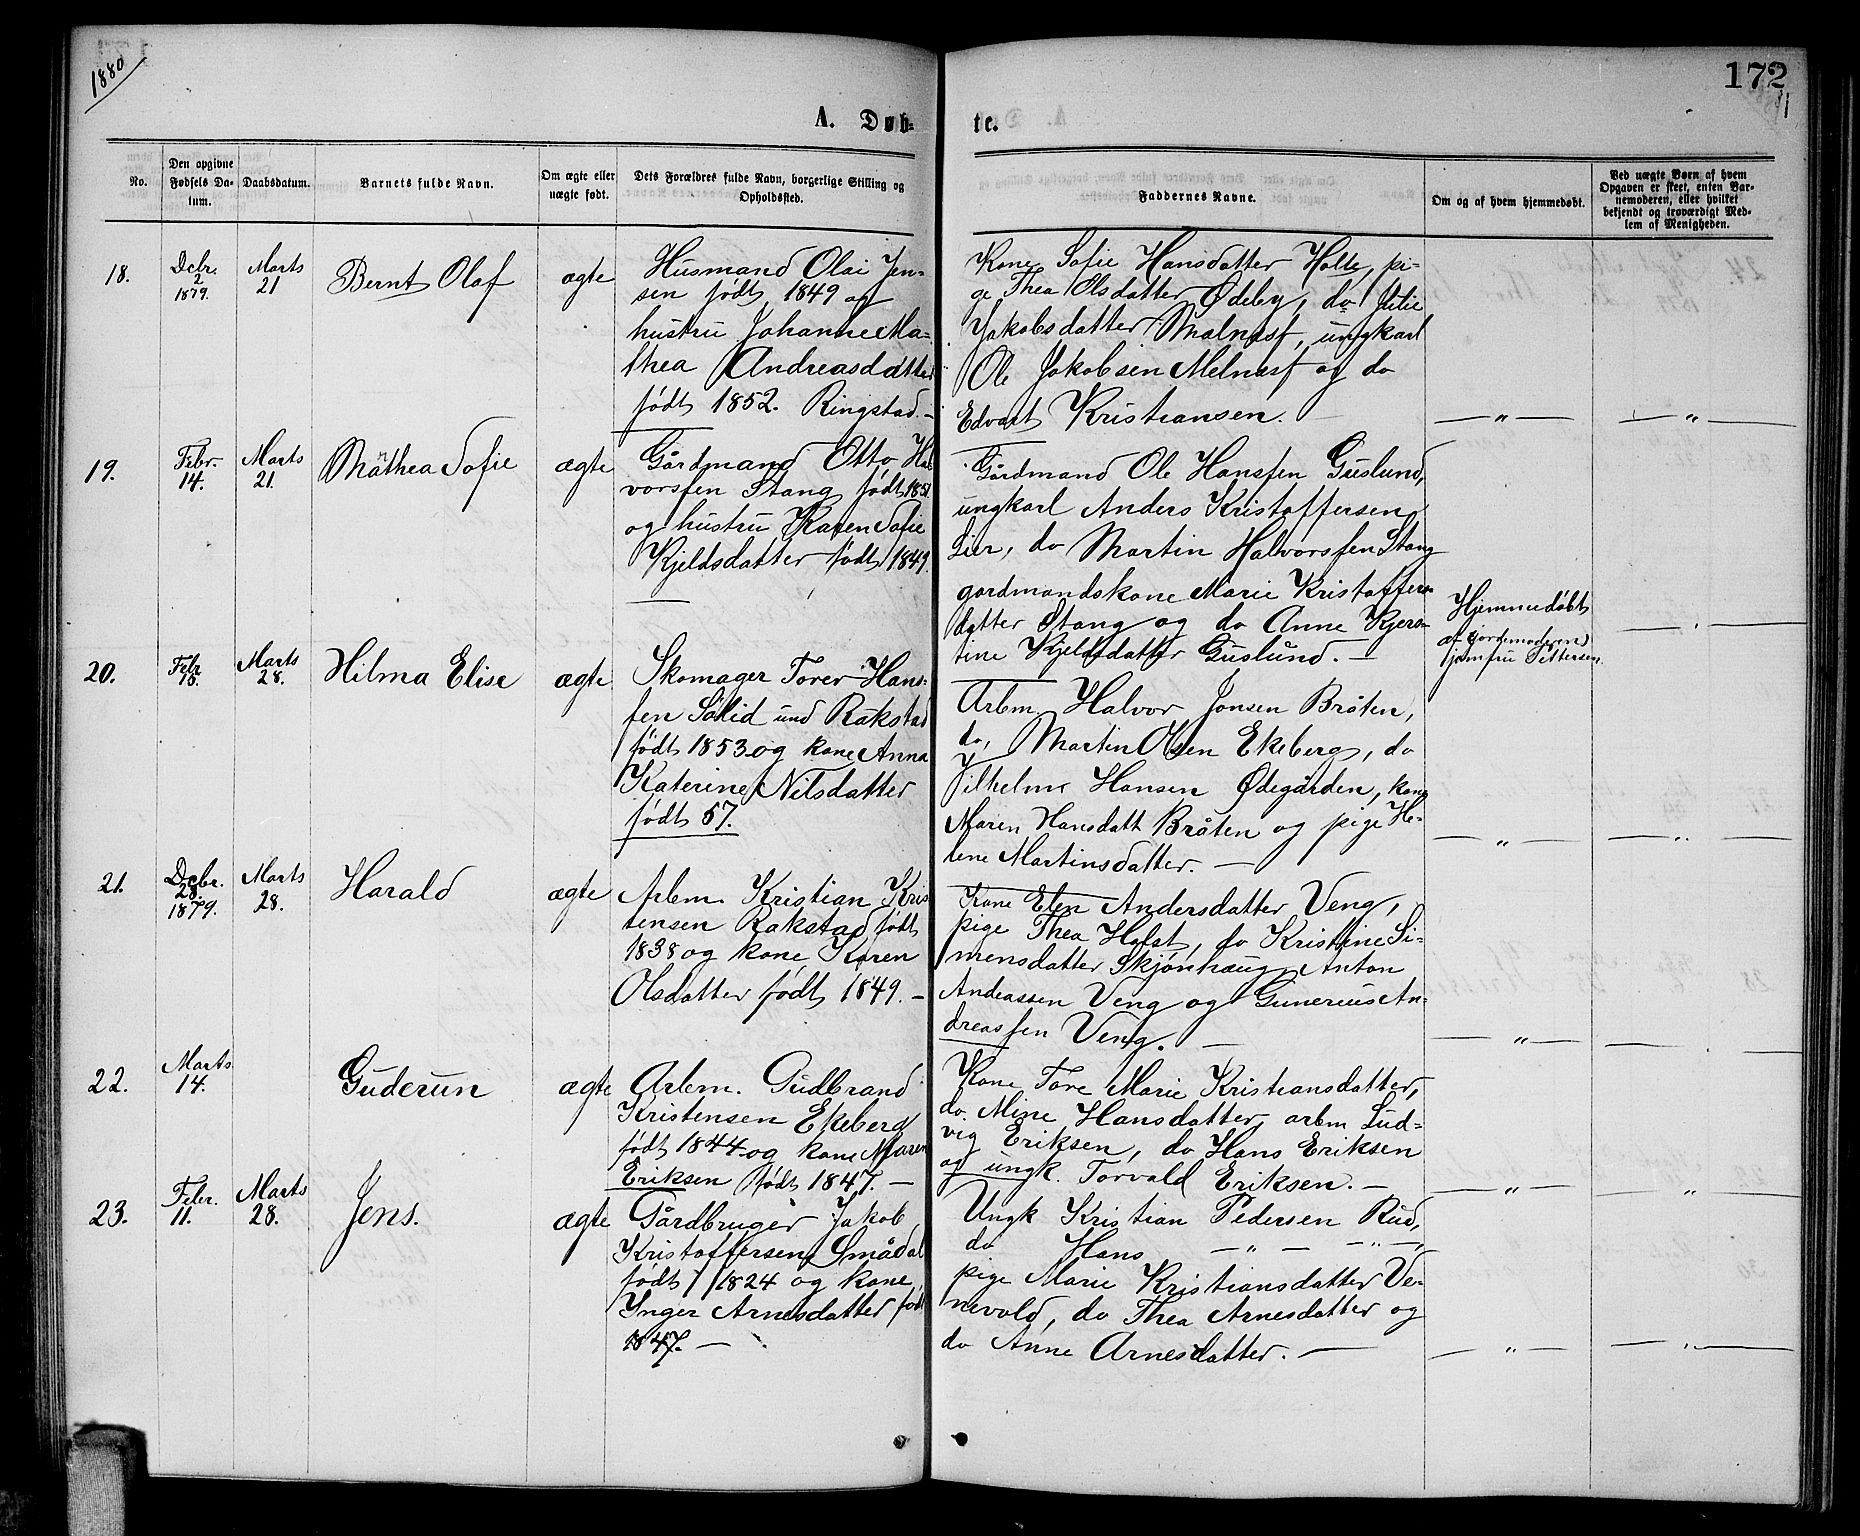 1880
172
A. Døb-
te.
No.
Den opgivne Fødsels Da-
tum.
Daabsdatum.
Barnets fulde Navn.
Om ægte eller uægte født.
Dets Forældres fulde Navn, borgerlige Stilling og Opholdssted.
Faddernes Navne.
Om og af hvem hjemmedøbt.
Ved uægte Børn af hvem
Opgaven er skeet, enten Bar-
nemoderen, eller hvilket
bekjendt og troværdigt Med-
lem af Menigheden.
18.
Dcbr. 2 1879.
Marts 21
Bernt Olaf
ægte
Husmand Olai Jen-
sen født 1849 og
hustru Johanne Ma-
thea Andreasdatter
født 1852. Ringstad. —
Kone Sofie Hansdatter Holte, pi-
ge Thea Olsdatter Ødeby, do Julie
Jakobsdatter Melnæs, ungkarl
Ole Jakobsen Melnæs og do
Edvart Kristiansen. —
— " —
— " —
19.
Febr. 14.
Marts 21.
Mathea Sofie
ægte
Gårdmand Otto Hal
vorssen Stang født 1851
og hustru Karen Sofie
Kjeldsdatter født 1849.
Gårdmand Ole Hanssen Guslund,
ungkarl Anders Kristoffersen
Lier, do Martin Halvorssen Stang
gordmandskone Marie Kristoffers-
datter Stang og do Anne Kjers-
tine Kjeldsdatter Guslund. —
Hjemmedøbt
af jordemoderen
jomfru Pettersen
20.
Febr 18.
Marts 28.
Hilma Elise
ægte
Skomager Torer Hans-
sen Sølid und Rakstad
født 1853 og kone Anna
Katerine Nilsdatter
født 57.
Arbm. Halvor Jonsen Bråten,
do, Martin Olsen Ekeberg, do
Vilhelm Hansen Ødegården, kone
Maren Hansdatt Bråten og pige He-
lene Martinsdatter. —
— " —
— " —
21.
Dcbr. 28. 1879.
Marts 28.
Harald
ægte
Arbm. Kristian Kris
tensen Rakstad født
1838 og kone Karen
Olsdatter født 1849. —
Kone Elen Andersdatter Veng,
pige Thea Holst, do Kristine Si-
mensdatter Skjønhaug, Anton
Andeassen Veng og Gunerius An-
dreassen Veng. —
— " —
22.
Marts 14.
Guderun
ægte
Arbm. Gudbrand
Kristensen Ekeberg
født 1844 og kone Maren
Eriksen født 1847. —
Kone Tore Marie Kristiansdatter,
do. Mine Hansdatter, arbm Lud-
vig Eriksen, do Hans Eriksen
og ungk. Torvald Eriksen. —
— " —
— " —
23.
Febr. 11.
Marts 28.
Jens.
ægte
Gårdbruger Jakob
Kristoffersen Smådal
født 1824 og kone
Ynger Arnesdatter født
1847. —
Ungk Kristian Pedersen Rud,
do Hans — " — — " —,
pige Marie Kristiansdatter Ve-
nevold, do Thea Arnesdatter og
do Anne Arnesdatter. —
— " —
— " —